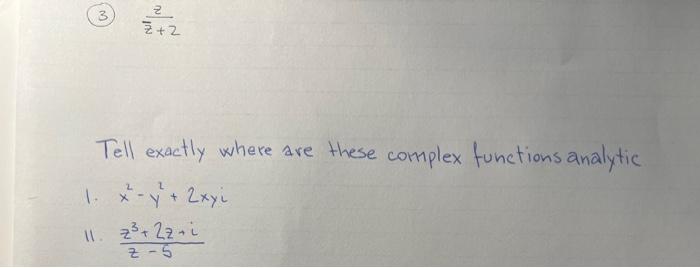 3 z
z̅+2
Tell exactly where are these complex functions analytic
1. x²-y²+2xyi
11. z³+2z+i
z-5